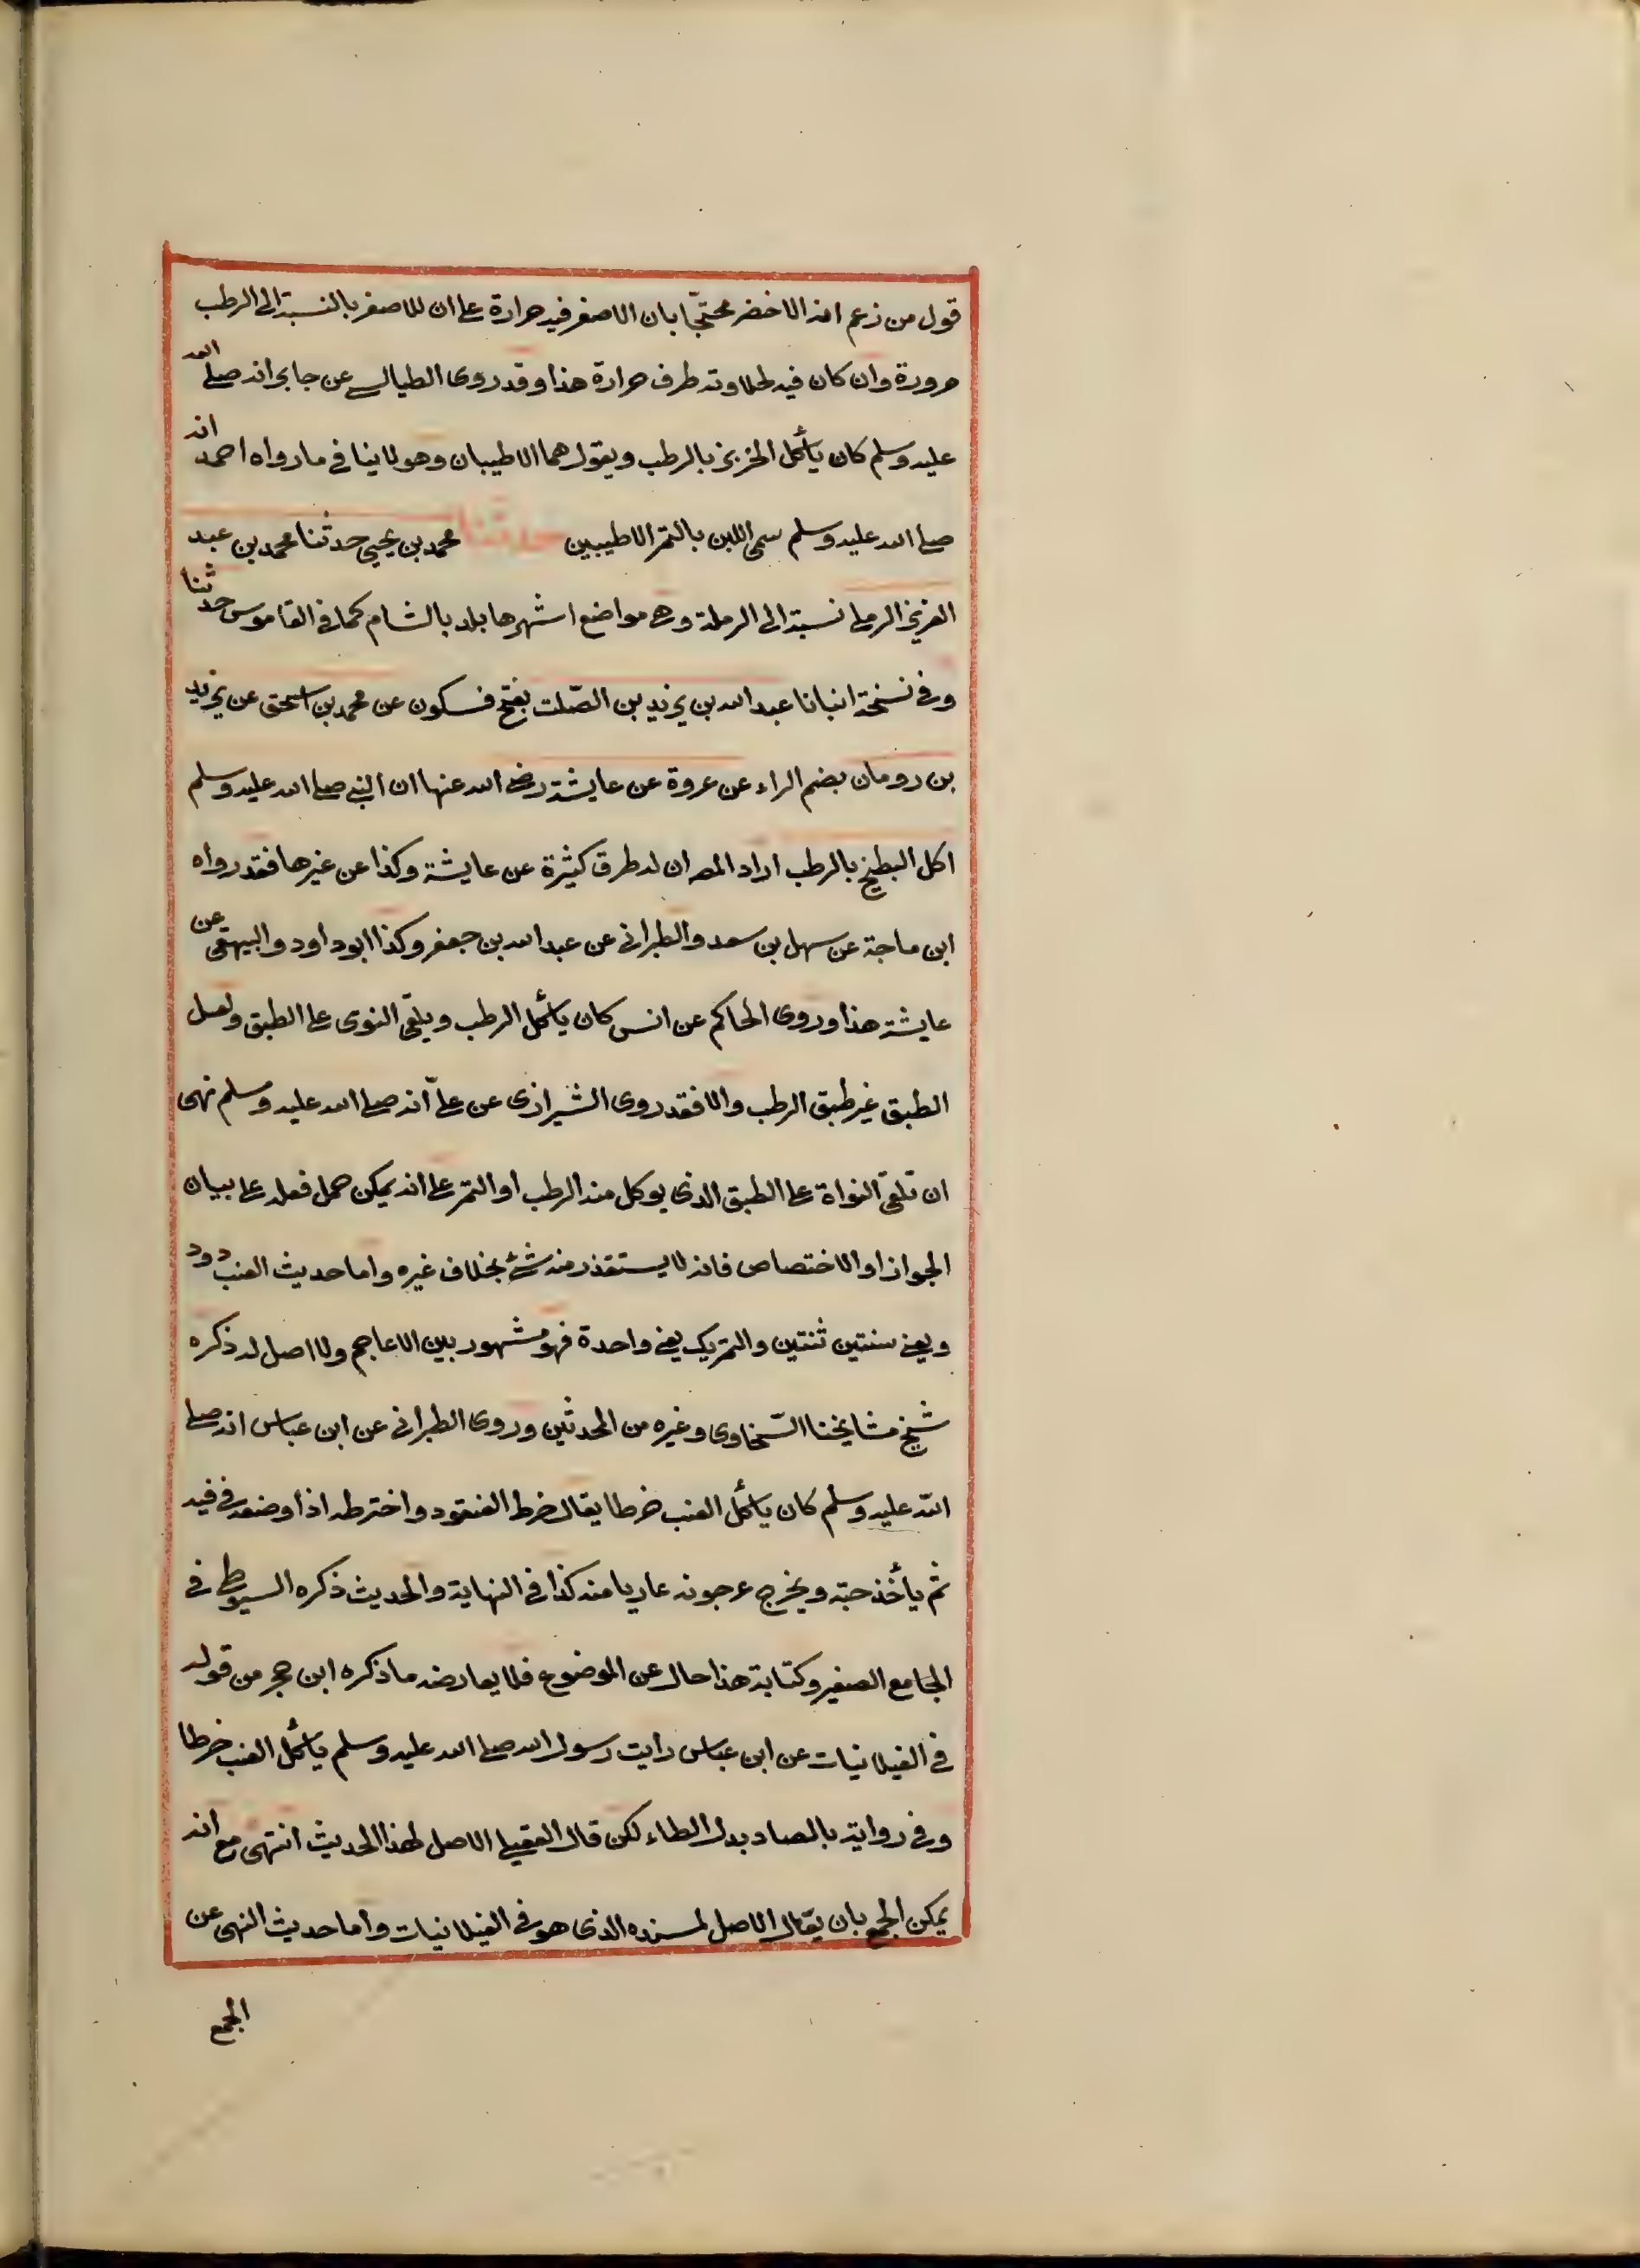 قول من زعم انه الاخضر محتجّا بان الاصفر فيه حرارة على ان للاصفر بالنسبة الى الرطب
برودة وان كان فيه لحلاوته طرف حرارة هذا وقد روى الطيالسي عن جابر انه صلى الله
عليه وسلم كان يأكل الخربز بالرطب ويقول هما الاطيبان وهو لا ينافي ما رواه احمد انه
صلى الله عليه وسلم سمى اللبن بالتمر الاطيبين حدثنا محمد بن يحيى حدثنا محمد بن عبد
العزيز الرملي نسبة الى الرملة وهي مواضع اشهرها بلد بالشام كما في القاموس حدثنا
وفي نسخة انبانا عبد الله بن يزيد بن الصّلت بفتح فسكون عن محمد بن اسحق عن يزيد
بن رومان بضم الراء عن عروة عن عايشة رضى الله عنها ان النبي صلى الله عليه وسلم
اكل البطيخ بالرطب اراد المص ان له طرق كثيرة عن عايشة وكذا عن غيرها فقد رواه
ابن ماجة عن سهل بن سعد والطبراني عن عبد الله بن جعفر وكذا ابو داود والبيهقي عن
عايشة هذا وروى الحاكم عن انس كان يأكل الرطب ويلقي النوى على الطبق ولعل
الطبق غير طبق الرطب والا فقد روى الشيرازى عن علىّ انه صلى الله عليه وسلم نهى
ان تلقى النواة على الطبق الذى يوكل منه الرطب او التمر على انه يمكن حمل فعله على بيان
الجواز او الاختصاص فانه لا يستقذر منه شئ بخلاف غيره واما حديث العنب دو دو
ويعني سنتين ثنتين والتمر يك يعني واحدة فهو مشهور بين الاعاجم ولا اصل له ذكره
شيخ مشايخنا السّخاوى وغيره من المحدثين وروى الطبراني عن ابن عباس انه صلى
اللّه عليه وسلم كان يأكل العنب خرطا يقال خرط العنقود واخترطه اذا وضعه في فيه
ثم يأخذ حبّه ويخرج عرجونه عاريا منه كذا في النهاية والحديث ذكره السيوطي في
الجامع الصغير وكتابة هذا حال عن الموضوع فلا يعارضه ما ذكره ابن حجر من قوله
في الغيلانيات عن ابن عباس رايت رسول الله صلى الله عليه وسلم يأكل العنب خرطا
وفي رواية بالصاد بدل الطاء لكن قال العقيلي لا اصل لهذا الحديث انتهى مع انه
يمكن الجمع بان يقال لا اصل لسنده الذى هو في الغيلانيات واما حديث النهى عن
الجمع